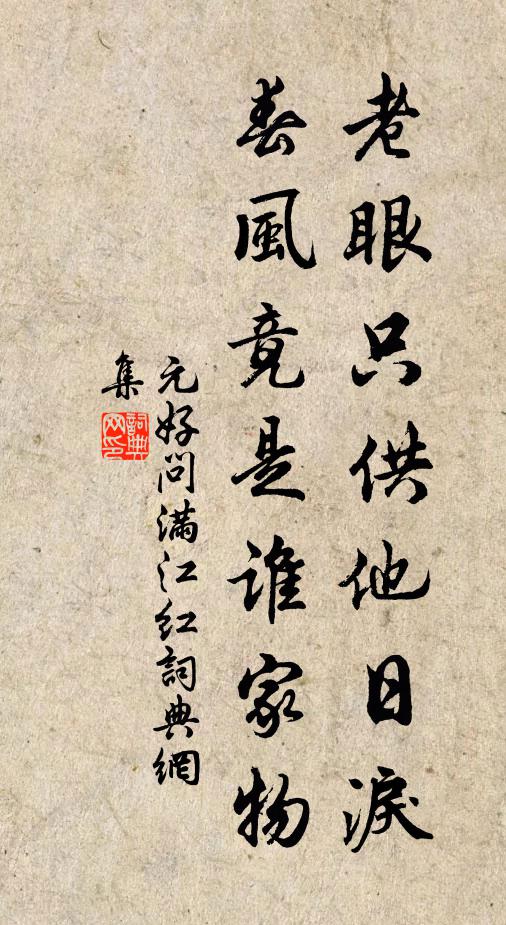 老眼只供他日淚
春風竟是誰家物
元好問滿江紅詞典網
集
詞典網印